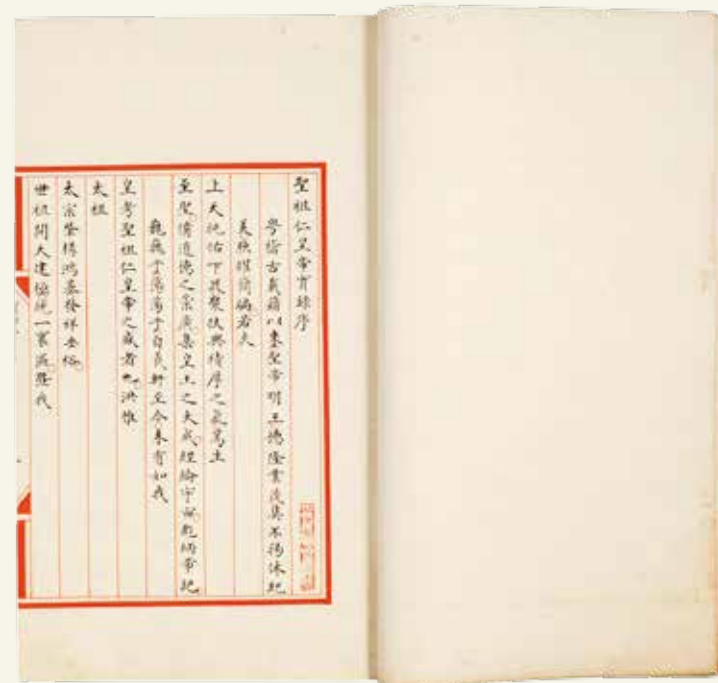 聖祖仁皇帝實錄序
粵稽古載籍以來聖帝明王德隆業茂莫不揚休紀
美炳燿簡編若夫
上天純佑下民聚扶輿積厚之氣篤生
至聖備道德之崇廣集皇王之大成經綸宇宙彪炳帝紀
巍巍乎蕩蕩乎自羲軒至今未有如我
皇考聖祖仁皇帝之盛者也洪惟
太祖
太宗肇構鴻基發祥垂裕
世祖開天建極統一寰區暨我